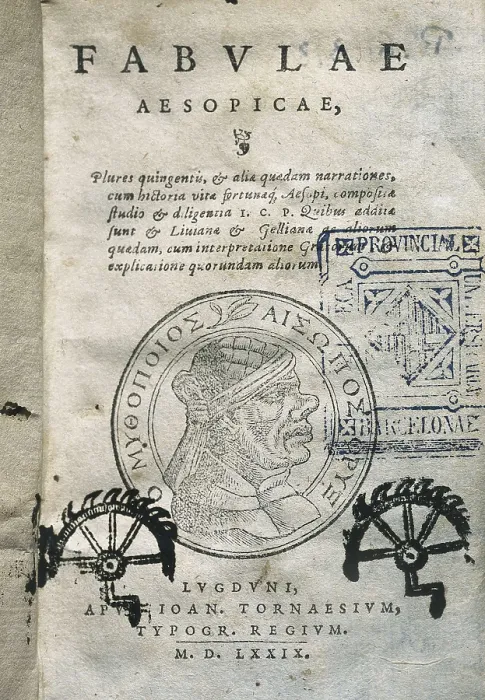 FABVLAE
AESOPICAE,
Plures quingentis, & aliæ quædam narrationes,
cum historia vitæ fortunæq́; Aesopi, compositæ
studio & diligentia I. C. P. Quibus additæ
sunt & Liuianæ & Gellianæ ac aliorum
quædam, cum interpretatione Græcorum &
explicatione quorundam aliorum
PROVINCIAL
BARCELONAE
ΜΥΘΟΠΟΙΟΣ ΑΙΣΩΠΟΣ ΦΡΥΞ
LVGDVNI,
IOAN. TORNAESIVM,
TYPOGR. REGIVM.
M. D. LXXIX.